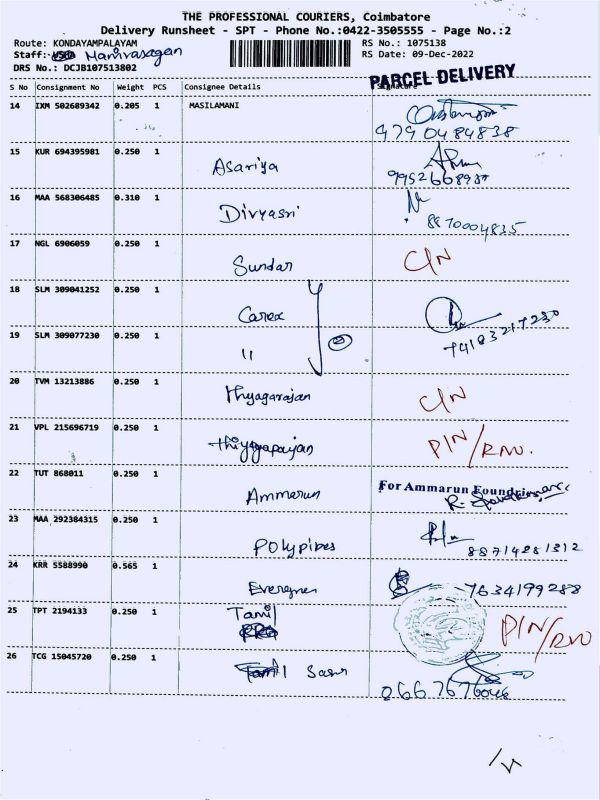 THE PROFESSIONAL COURIERS, Coimbatore
Delivery Runsheet - SPT - Phone No.:0422-3505555 - Page No.:2
Route: KONDAYAMPALAYAM RS No.: 1075138
Staff: Manivasagan RS Date: 09-Dec-2022
DRS No.: DCJB107513802
PARCEL DELIVERY
S No Consignment No Weight PCS Consignee Details Signature
14 IXM 502689342 0.205 1 MASILAMANI
9790484838
15 KUR 694395981 0.250 1 Asariya
16 MAA 568306485 0.310 1 Divyasri
8870004835
17 NGL 6906059 0.250 1 Sundar C/N
18 SLM 309041252 0.250 1 Carex
19 SLM 309077230 0.250 1 "
74183217230
20 TVM 13213886 0.250 1 Thyagarajan C/N
21 VPL 215696719 0.250 1 P/N/RNO.
22 TUT 868011 0.250 1 Ammarun For Ammarun Foundries
23 MAA 292384315 0.250 1 Polypipes
88714281312
24 KRR 5588990 0.565 1 Evergreen 7634199288
25 TPT 2194133 0.250 1 Tamil P/N/RNO
26 TCG 15045720 0.250 1